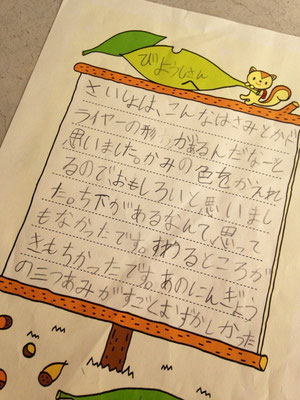 びようしさん
さいしょは、こんなはさみとかド
ライヤーの 形 があるんだなーと
思いました。かみの色をか入れ
るのでおもしろいと思いまし
た。ち下があるなんて、思って
もなかったです。すわるところが
きもちかったです。あのにんぎょう
の三つあみがすごくむずかしかった